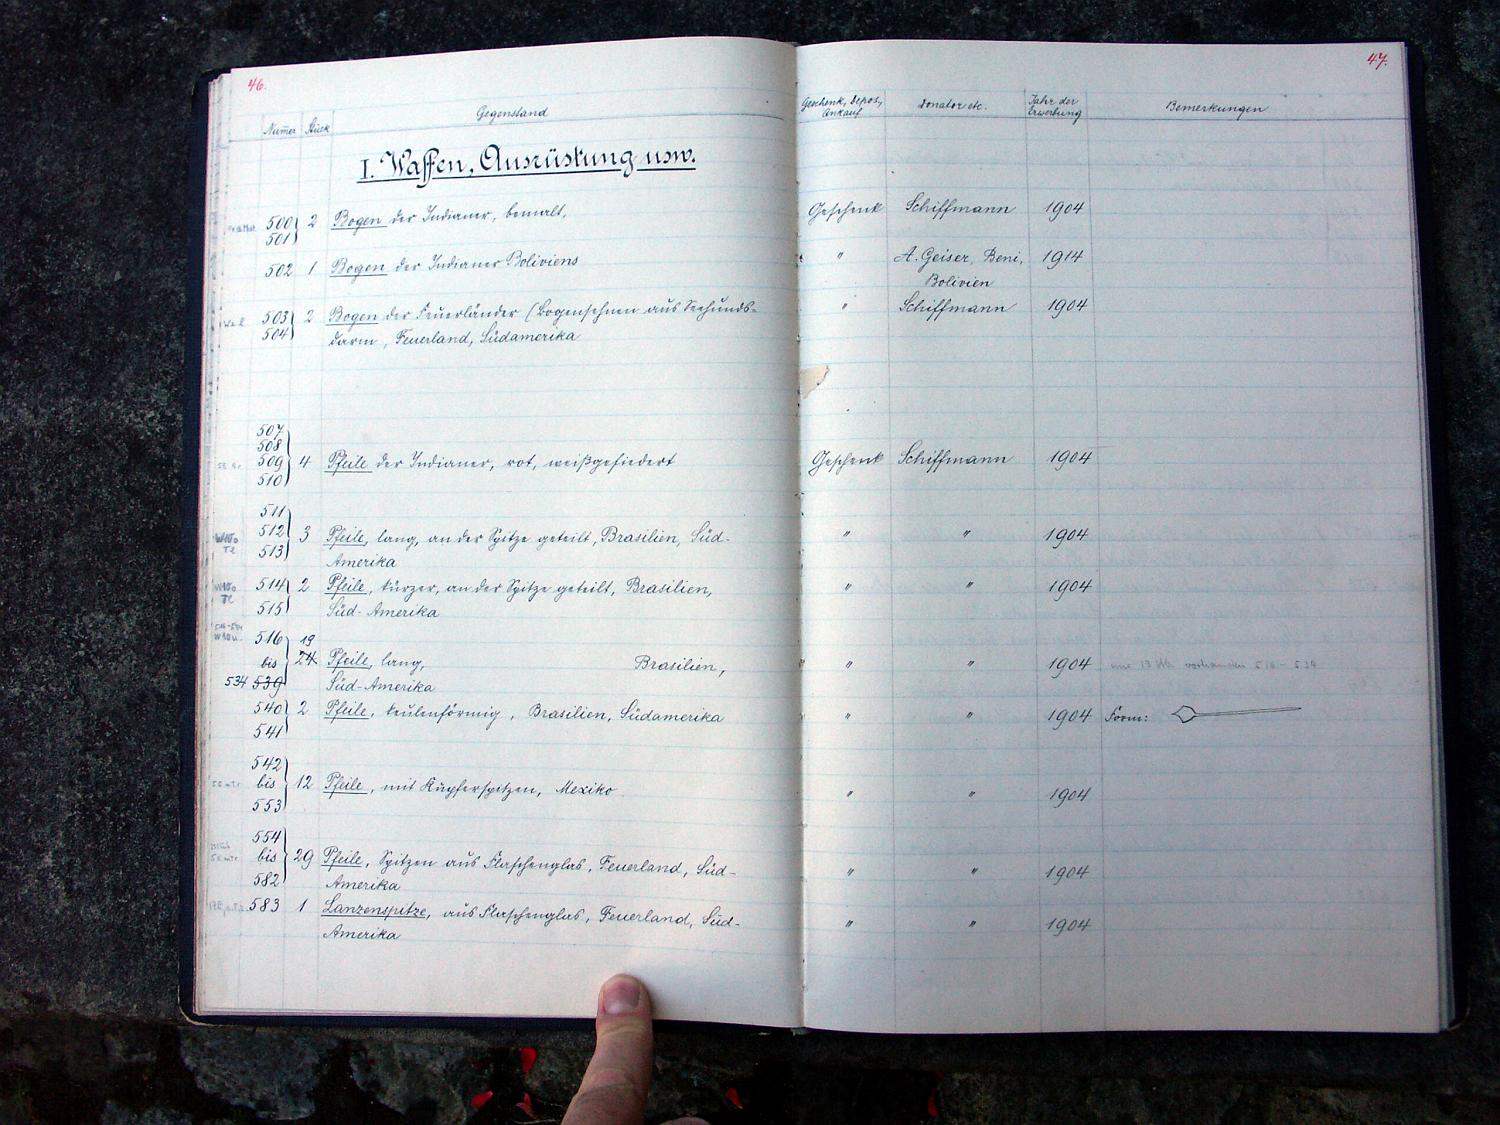 46.
47.
Numer Stück Gegenstand Geschenk, depos, Ankauf Donator etc. Jahr der Erwerbung Bemerkungen
I. Waffen, Ausrüstung usw.
500 2 Bogen der Indianer, bemalt. Geschenk Schiffmann 1904
501
502 1 Bogen der Indianer Boliviens " A. Geiser, Beni, 1914
Bolivien
503 2 Bogen der Feuerländer (Bogensehnen aus Seehunds- " Schiffmann 1904
504 darm, Feuerland, Südamerika
507
508
509 4 Pfeile der Indianer, rot, weißgefiedert Geschenk Schiffmann 1904
510
511
512 3 Pfeile, lang, an der Spitze geteilt, Brasilien, Süd- " " 1904
513 Amerika
514 2 Pfeile, kürzer, an der Spitze geteilt, Brasilien, " " 1904
515 Süd-Amerika
516 19
bis 24 Pfeile, lang, Brasilien, " " 1904 vorhanden 516-534
534 539 Süd-Amerika
540 2 Pfeile, keulenförmig, Brasilien, Südamerika " " 1904 Form:
541
542
bis 12 Pfeile, mit Kupferspitzen, Mexiko " " 1904
553
554
bis 29 Pfeile, Spitzen aus Flaschenglas, Feuerland, Süd- " " 1904
582 Amerika
583 1 Lanzenspitze, aus Flaschenglas, Feuerland, Süd- " " 1904
Amerika